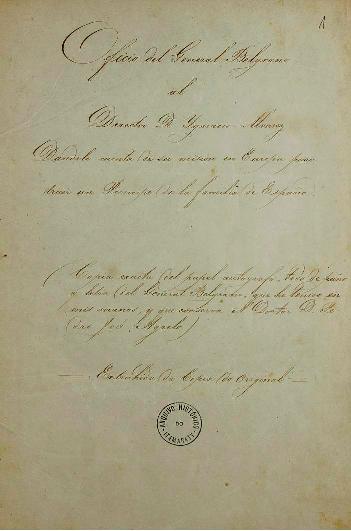 1
Oficio del General Belgrano
al
Director D. Ygnacio Alvarez
Dandole cuenta de su mision en Europa para
traer un Principe de la familia de España.
(Copia del papel autografo, todo de puño
y letra del General Belgrano, que he tenido en
mis manos, y que conserva el Doctor D. Pe
dro José Agrelo)
— Extrahida da Copia do Original —
ARCHIVO HISTORICO
DO
ITAMARATY